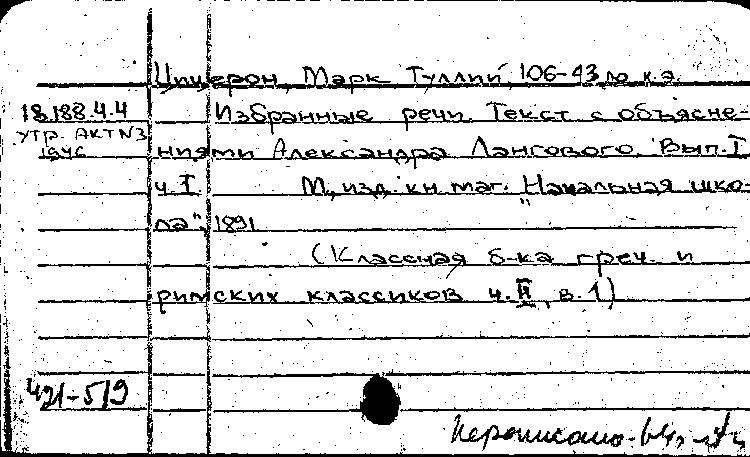 Цицерон, Марк Туллий, 106-43 до н.э.
18.188.4.4
Избранные речи. Текст с объясне-
утр. АКТ N3
1946
ниями Александра Лангового. Вып. I
ч. I. М., изд. кн. маг. "Начальная шко-
ла", 1891
(Классная б-ка греч. и
римских классиков ч. II, в. 1)
421-5/9